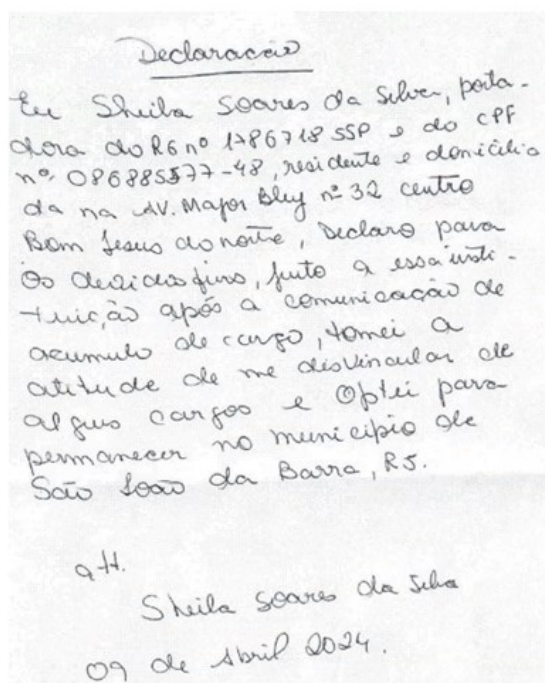 Declaração
Eu Sheila Soares da Silva, porta-
dora do RG nº 1786718 SSP e do CPF
nº 086885577-48, residente e domicilia
da na AV. Major Bley nº 32 centro
Bom Jesus do norte, Declaro para
Os devidos fins, junto a essa insti-
tuição após a comunicação de
acumulo de cargo, tomei a
atitude de me disvincular de
alguns cargos e Optei para
permanecer no município de
São João da Barra, RJ.
att.
Sheila Soares da Silva
09 de Abril 2024.